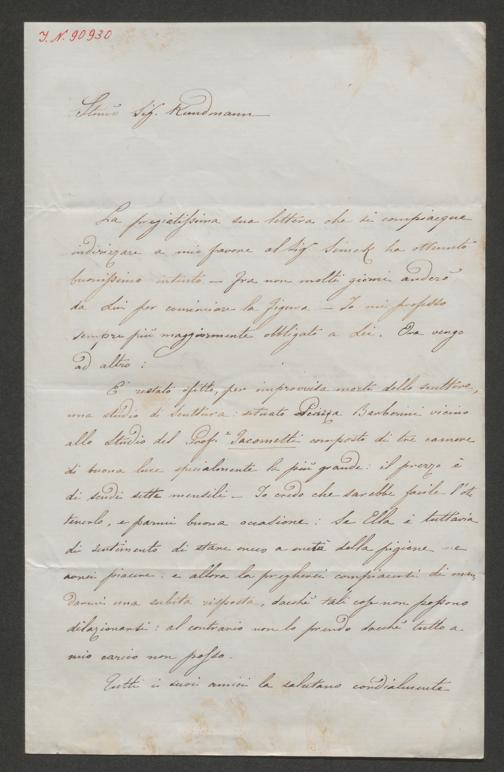 I. N. 90930
Stimo Sig. Kundmann
La pregiatissima sua lettera che si compiacque
indirizzare a mio favore al Sig. Simek ha ottenuto
buonissimo intento — fra non molti giorni anderò
da Lui per cominciare la figura — Io mi professo
sempre più maggiormente obbligato a Lei. Ora vengo
ad altro:
E' restato sfitto, per improvvisa morte dello scultore,
uno studio di Scultura: situato Piazza Barberini vicino
allo Studio del Profe. Jacometti composto di tre camere
di buona luce specialmente la più grande: il prezzo è
di scudi sette mensili — Io credo che sarebbe facile l'ot
tenerlo, e parmi buona occasione: Se Ella è tuttavia
di sentimento di stare meco a metà della pigione ne
avrei piacere: e allora la pregherei compiacersi di man
darmi una subita risposta, dacchè tali cose non possono
dilazionarsi: al contrario non lo prendo dacchè tutto a
mio carico non posso.
Tutti i suoi amici la salutano cordialmente